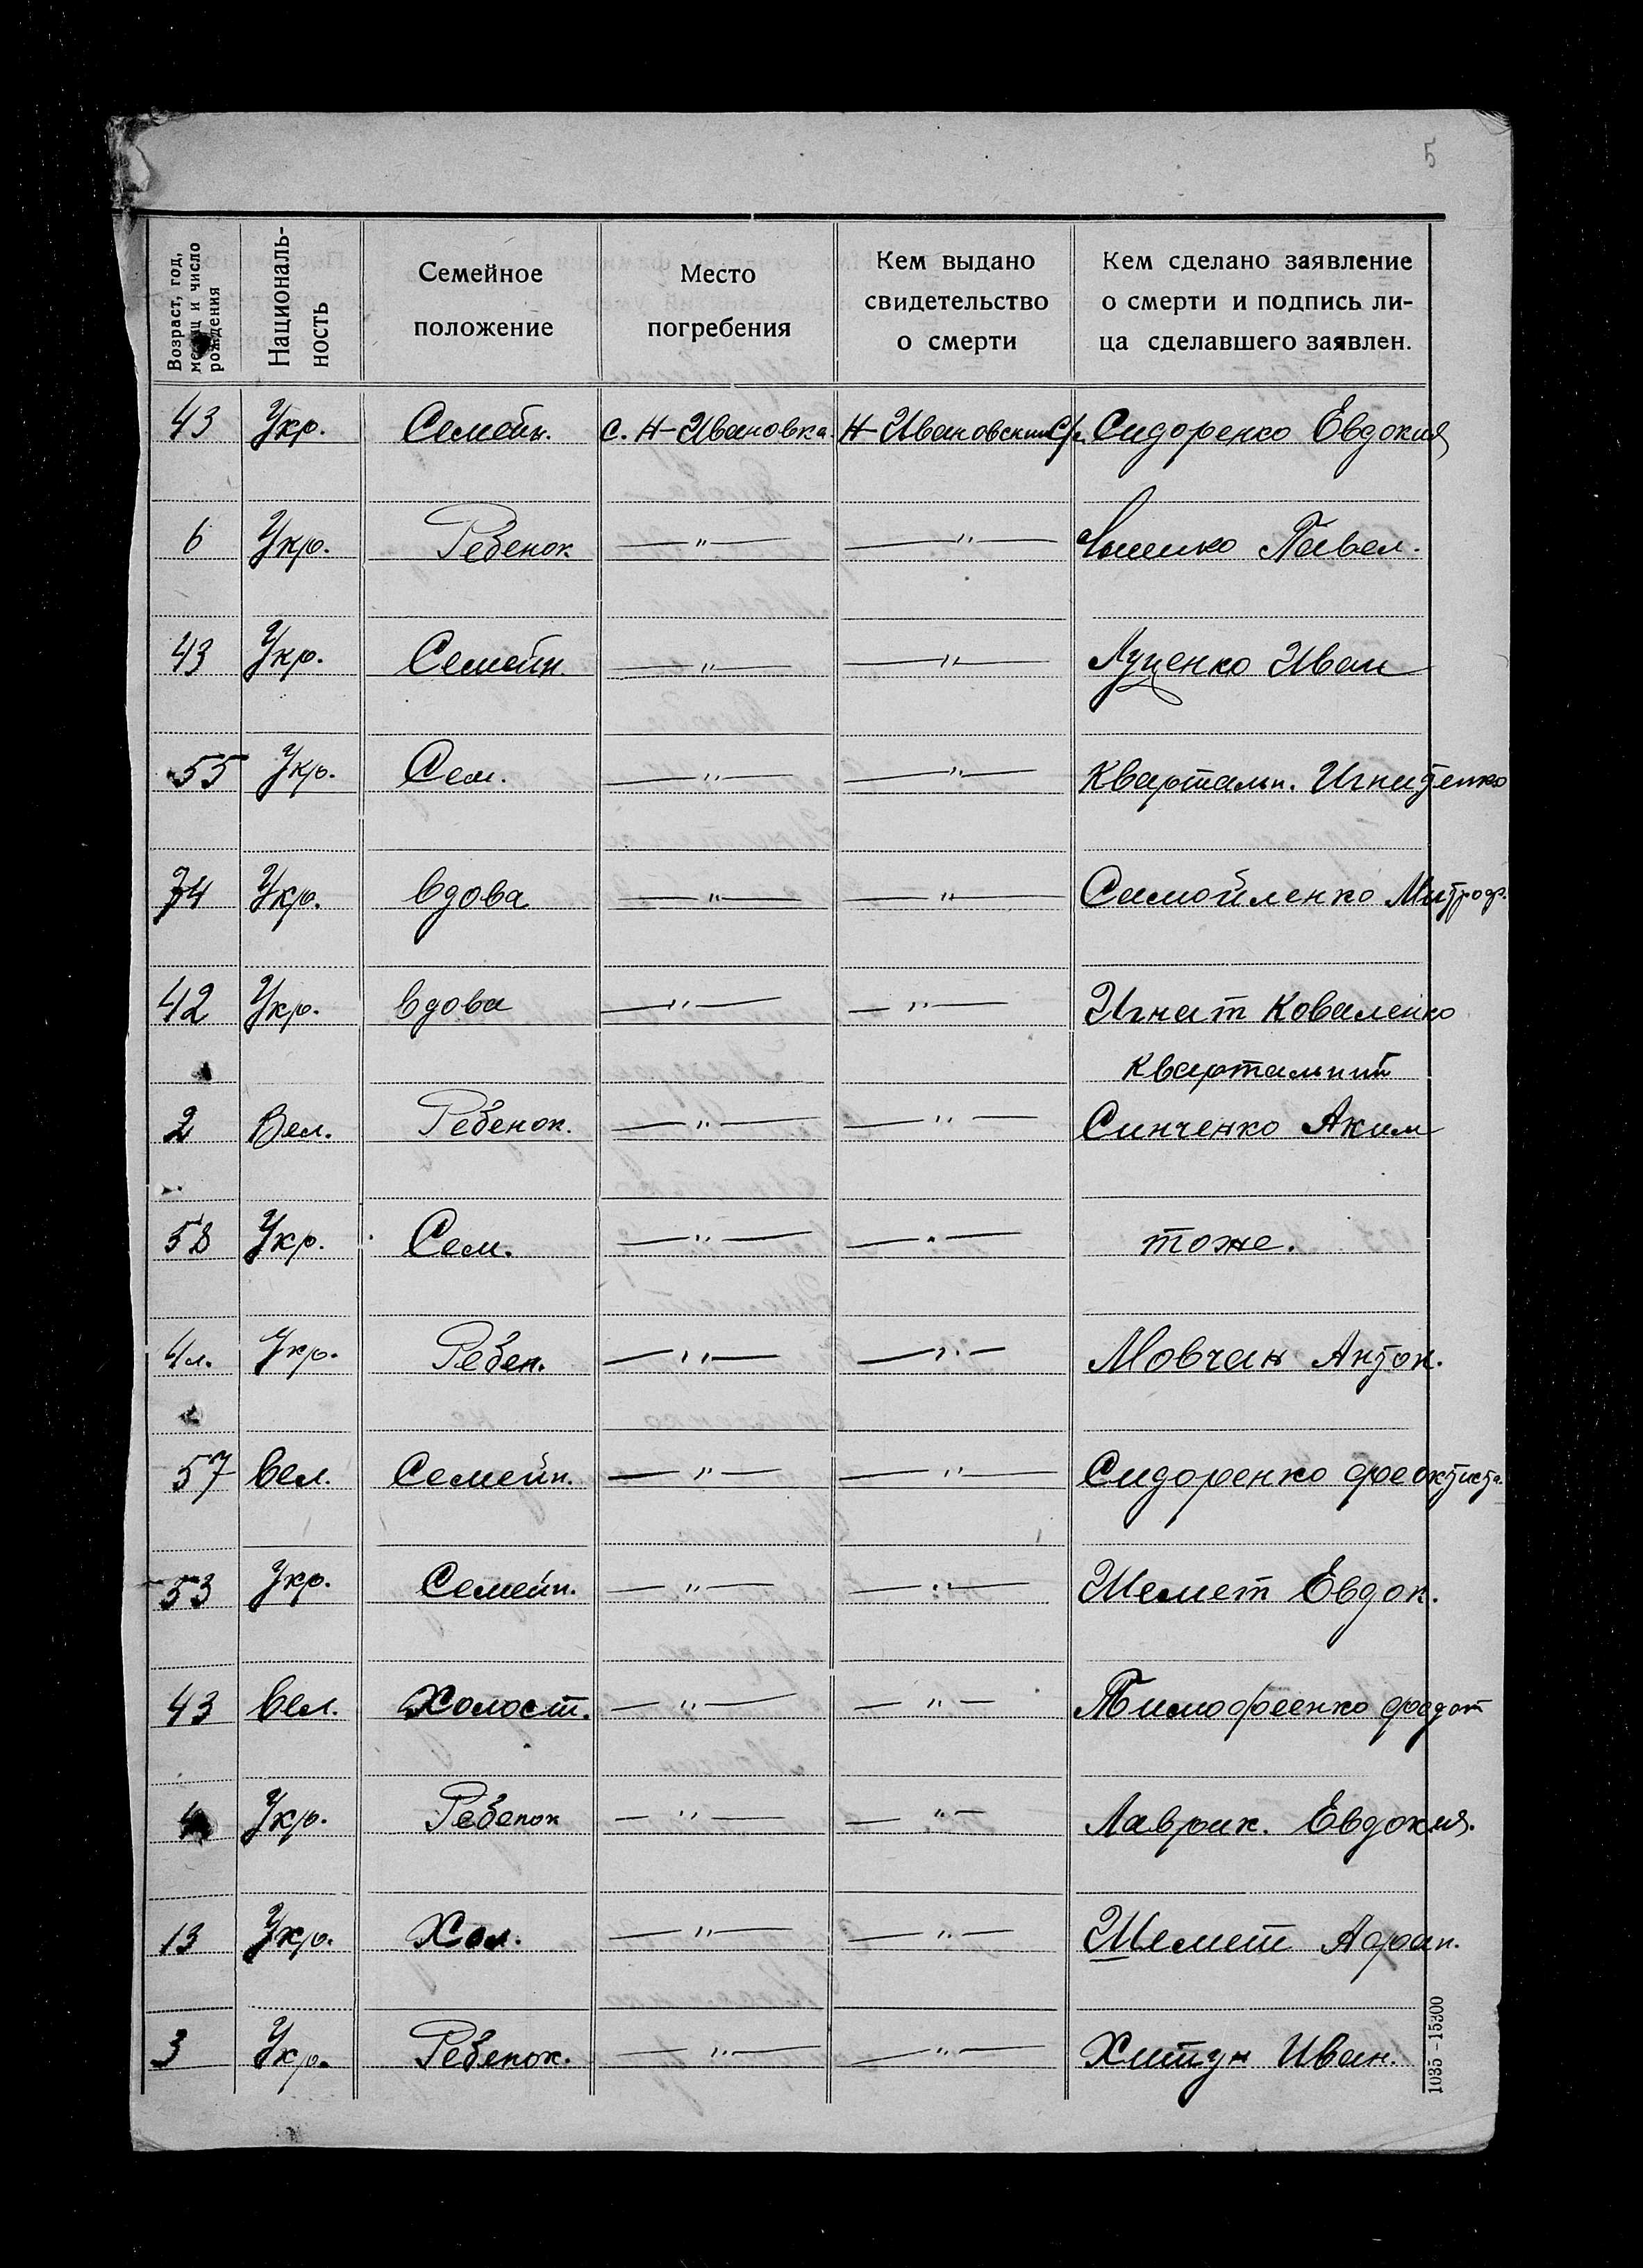 5
Возраст, год, месяц и число рождения
Националь-
ность
Семейное
положение
Место
погребения
Кем выдано
свидетельство
о смерти
Кем сделано заявление
о смерти и подпись ли-
ца сделавшего заявлен.
43 Укр. Семейн. с. Н-Ивановка Н-Ивановским С/с. Сидоренко Евдокия
6 Укр. Ребенок —"— —"— Павел.
43 Укр. Семейн. —"— —"— Луценко Иван
55 Укр. Сем. —"— —"— Квартальн. Игнатенко
74 Укр. вдова —"— —"— Самойленко Митроф.
42 Укр. вдова —"— —"— Игнат Коваленко
квартальный
2 Вел. Ребенок. —"— —"— Синченко Аким
58 Укр. Сем. —"— —"— тоже.
4 л. Укр. Ребен. —"— —"— Мовчан Антон.
57 Вел. Семейн. —"— —"— Сидоренко Феоктиста.
53 Укр. Семейн. —"— —"— Шемет Евдок.
43 Вел. Холост. —"— —"— Тимофеенко Федот
Укр. Ребенок —"— —"— Лаврик. Евдокия.
13 Укр. Хол. —"— —"— Шемет Афан.
3 Укр. Ребенок. —"— —"— Хитун Иван.
1035 – 15300